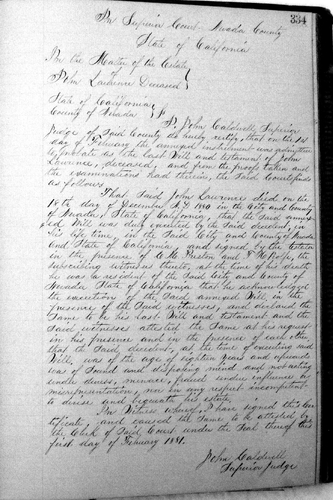 334
In Superior Court Nevada County
State of California
In the Matter of the Estate
of
John Lawrence Deceased
State of California
County of Nevada
I, John Caldwell, Superior
Judge of Said County do hereby certify, that on the 1st
day of February the annexed instrument was admitted
to probate as the Last Will and testament of John
Lawrence, deceased, and from the proofs taken and
the examinations had therein, the Said Court finds
as follows
That Said John Lawrence died on the
14th day of December A.D. 1880 in the City and County
of Nevada, State of California, that the Said annex-
ed Will was duly executed by the Said decedent, in
his life time, in the Said City and County of Nevada
and State of California, and signed by the testator
in the presence of Preston and Rolfe, the
subscribing witnesses thereto, at the time of his death
he was a resident of the Said City and County of
Nevada State of California that he acknowledged
the execution of the Said annexed Will in the
presence of the Said witnesses, and declared the
Same to be his Last Will and testament and the
Said witnesses attested the Same at his request
in his presence and in the presence of each other
that the Said decedent, at the time of executing said
Will, was of the age of eighteen years and upwards
was of Sound and disposing mind and not acting
under duress, menace, fraud undue influence or
misrepresentation, nor in any respect incompetent
to devise and bequeath his estate,
In Witness whereof, I have signed this Cer
tificate, and caused the Same to be attested by
the Clerk of Said Court under the Seal thereof this
first day of February 1881.
John Caldwell
Superior Judge